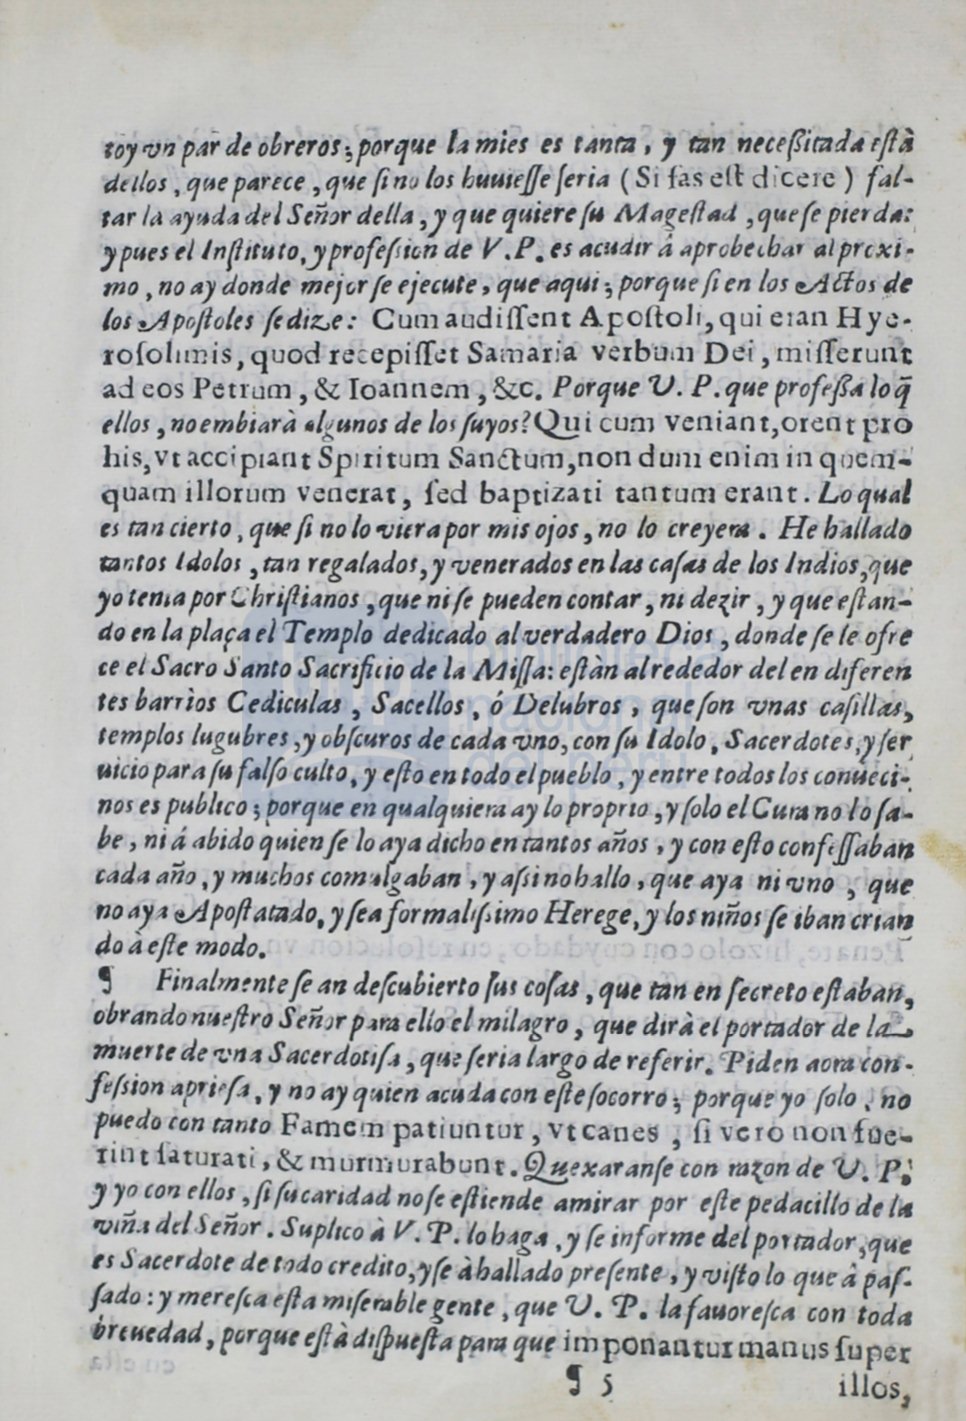 toy vn par de obreros; porque la mies es tanta, y tan neceßitada està
dellos, que parece, que si no los huuiesse seria (Si fas est dicere) fal-
tar la ayuda del Señor della, y que quiere su Magestad, que se pierda:
y pues el Instituto, y profession de V. P. es acudir á aprobechar al proxi-
mo, no ay donde mejor se ejecute, que aqui; porque si en los Actos de
los Apostoles se dize: Cum audissent Apostoli, qui eran Hye-
rosolimis, quod recepisset Samaria verbum Dei, misserunt
ad eos Petrum, & Ioannem, &c. Porque V. P. que profeßa lo q̃
ellos, no embiarà algunos de los suyos? Qui cum veniant, orent pro
his, vt accipiant Spiritum Sanctum, non dum enim in quem-
quam illorum venerat, sed baptizati tantum erant. Lo qual
es tan cierto, que si no lo viera por mis ojos, no lo creyera. He hallado
tantos Idolos, tan regalados, y venerados en las casas de los Indios, que
yo tenia por Christianos, que ni se pueden contar, ni dezir, y que estan-
do en la plaça el Templo dedicado al verdadero Dios, donde se le ofre
ce el Sacro Santo Sacrificio de la Missa: estàn alrededor del en diferen
tes barrios Cediculas, Sacellos, ó Delubros, que son vnas casillas,
templos lugubres, y obscuros de cada vno, con su Idolo, Sacerdotes, y ser
uicio para su falso culto, y esto en todo el pueblo, y entre todos los conueci-
nos es publico; porque en qualquiera ay lo proprio, y solo el Cura no lo sa-
be, ni á abido quien se lo aya dicho en tantos años, y con esto confessaban
cada año, y muchos comulgaban, y assi no hallo, que aya ni vno, que
no aya Apostatado, y sea formalissimo Herege, y los niños se iban crian
do à este modo.
¶ Finalmente se an descubierto sus cosas, que tan en secreto estaban,
obrando nuestro Señor para ello el milagro, que dirà el portador de la
muerte de vna Sacerdotisa, que seria largo de referir. Piden aora con-
fession apriesa, y no ay quien acuda con este socorro; porque yo solo, no
puedo con tanto Famem patiuntur, vt canes, si vero non fue-
rint saturati, & murmurabunt. Quexaranse con razon de V. P.
y yo con ellos, si su caridad no se estiende amirar por este pedacillo de la
viña del Señor. Suplico à V. P. lo haga, y se informe del portador, que
es Sacerdote de todo credito, y se à hallado presente, y visto lo que à pas-
sado: y meresca esta miserable gente, que V. P. la fauoresca con toda
breuedad, porque està dispuesta para que imponantur manus super
¶ 5 illos,